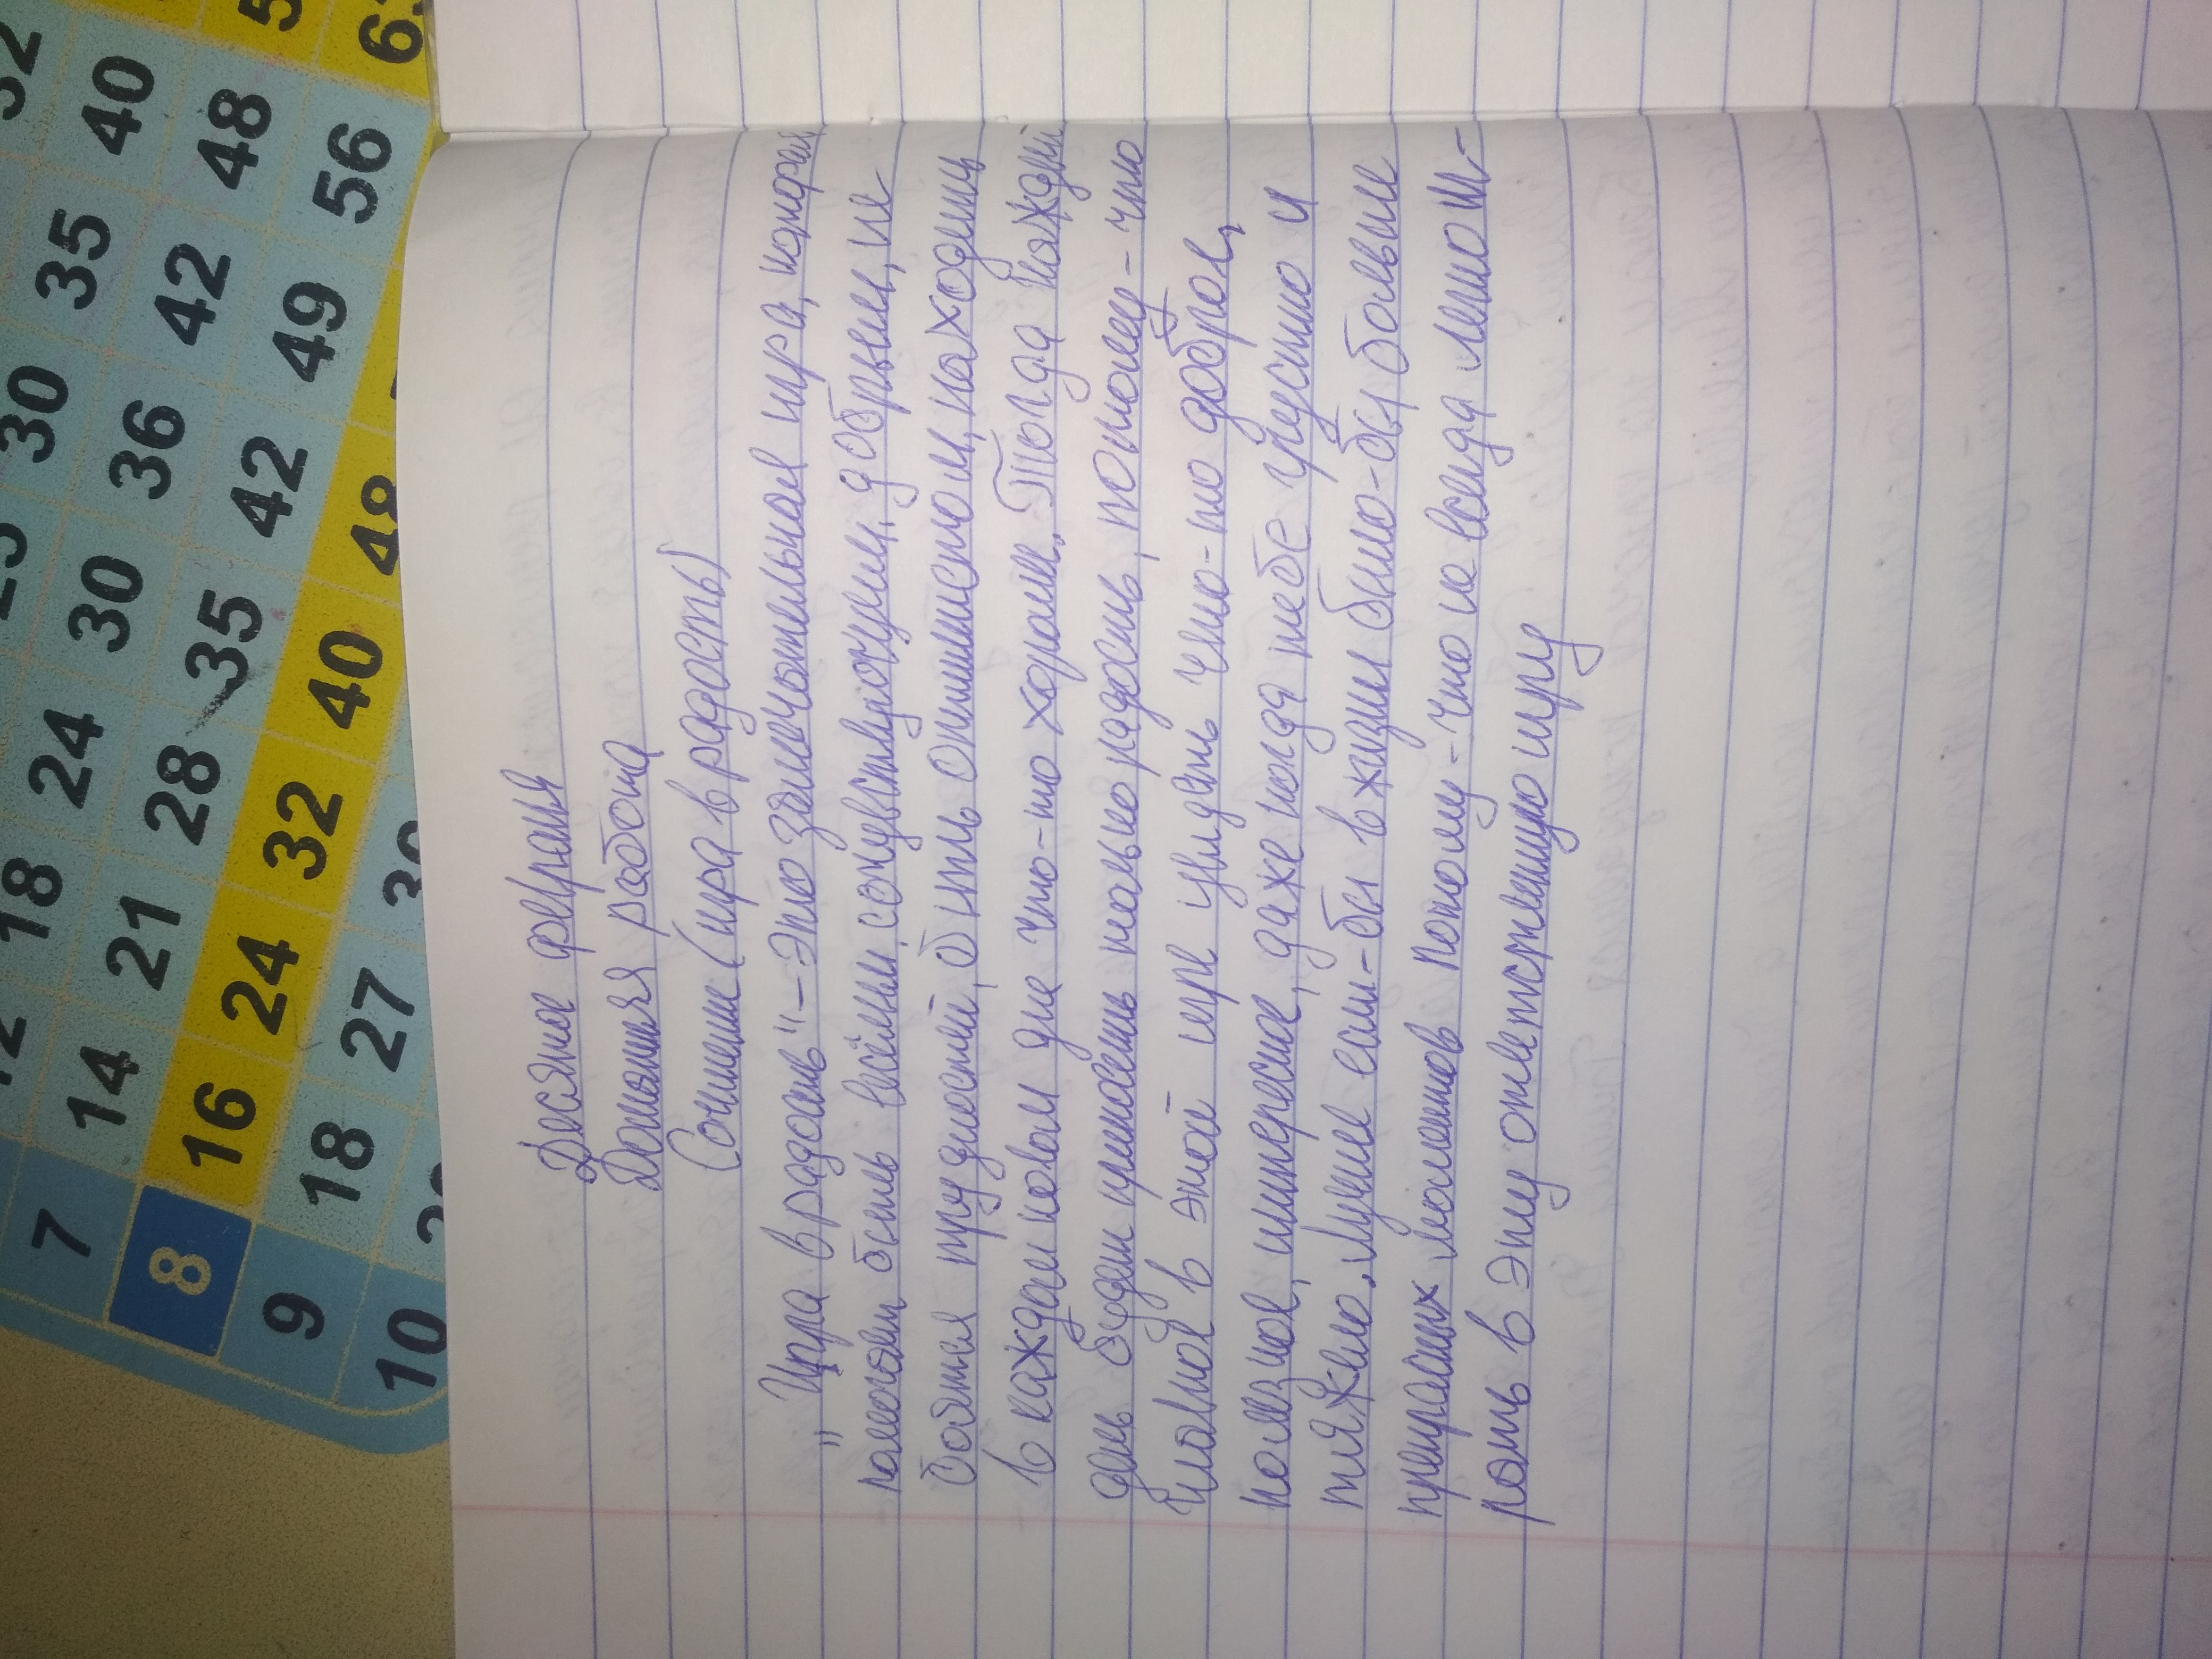 Десятое февраля
Домашняя работа
Сочинение (игра в радость)
„Игра в радость" - это замечательная игра, которая
помогает быть весёлым, сочувствующим, добрым, не
бояться трудностей, быть оптимистом, находить
в каждом новом дне что-то хорошее. Тогда каждый
день будет приносить только радость, потому-что
главное в этой игре увидеть что-то доброе,
полезное, интересное, даже когда тебе грустно и
тяжело. Лучше если-бы в жизни было-бы больше
прекрасных моментов потому-что не всегда
в эту игру
7
14
21
28
35
42
49
56
8
16
24
32
40
48
9
18
27
10
18
24
30
36
42
48
30
35
40